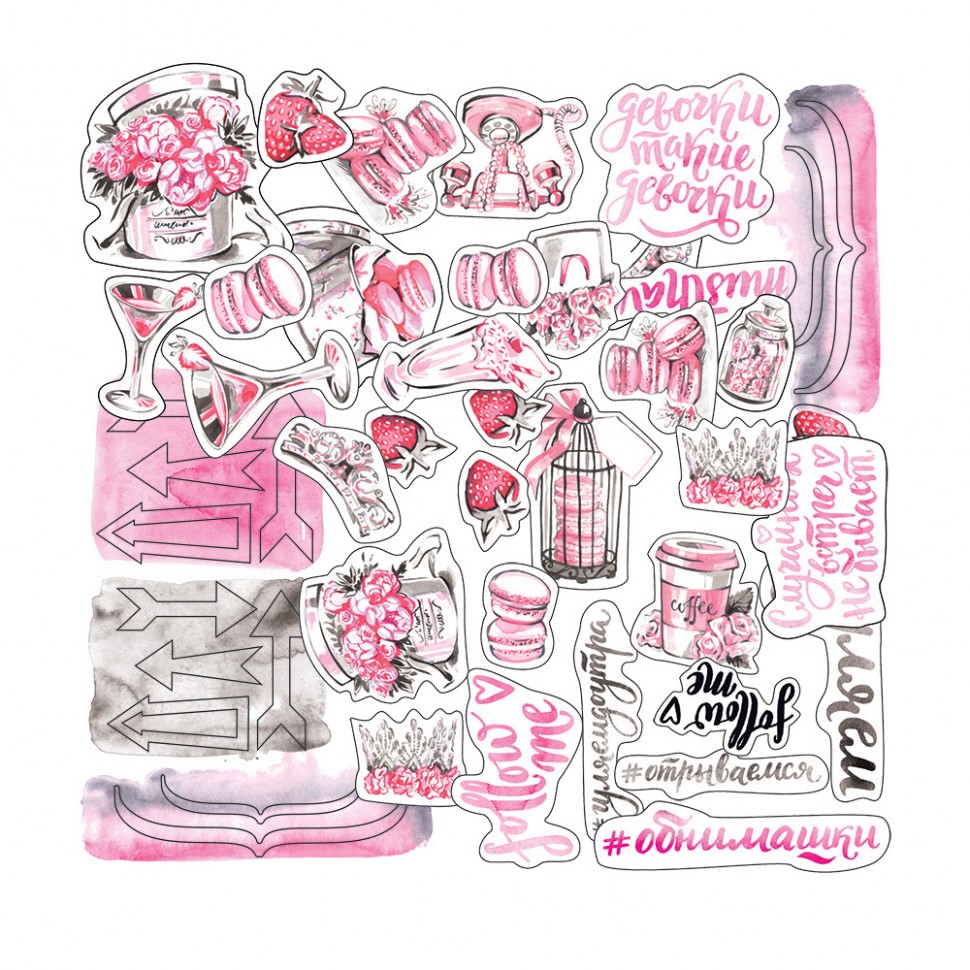 девочки
такие
девочки
coffee
Случайных
встреч
не бывает
follow
me
follow
me
#гуляемдоутра
#отрываемся
#обнимашки